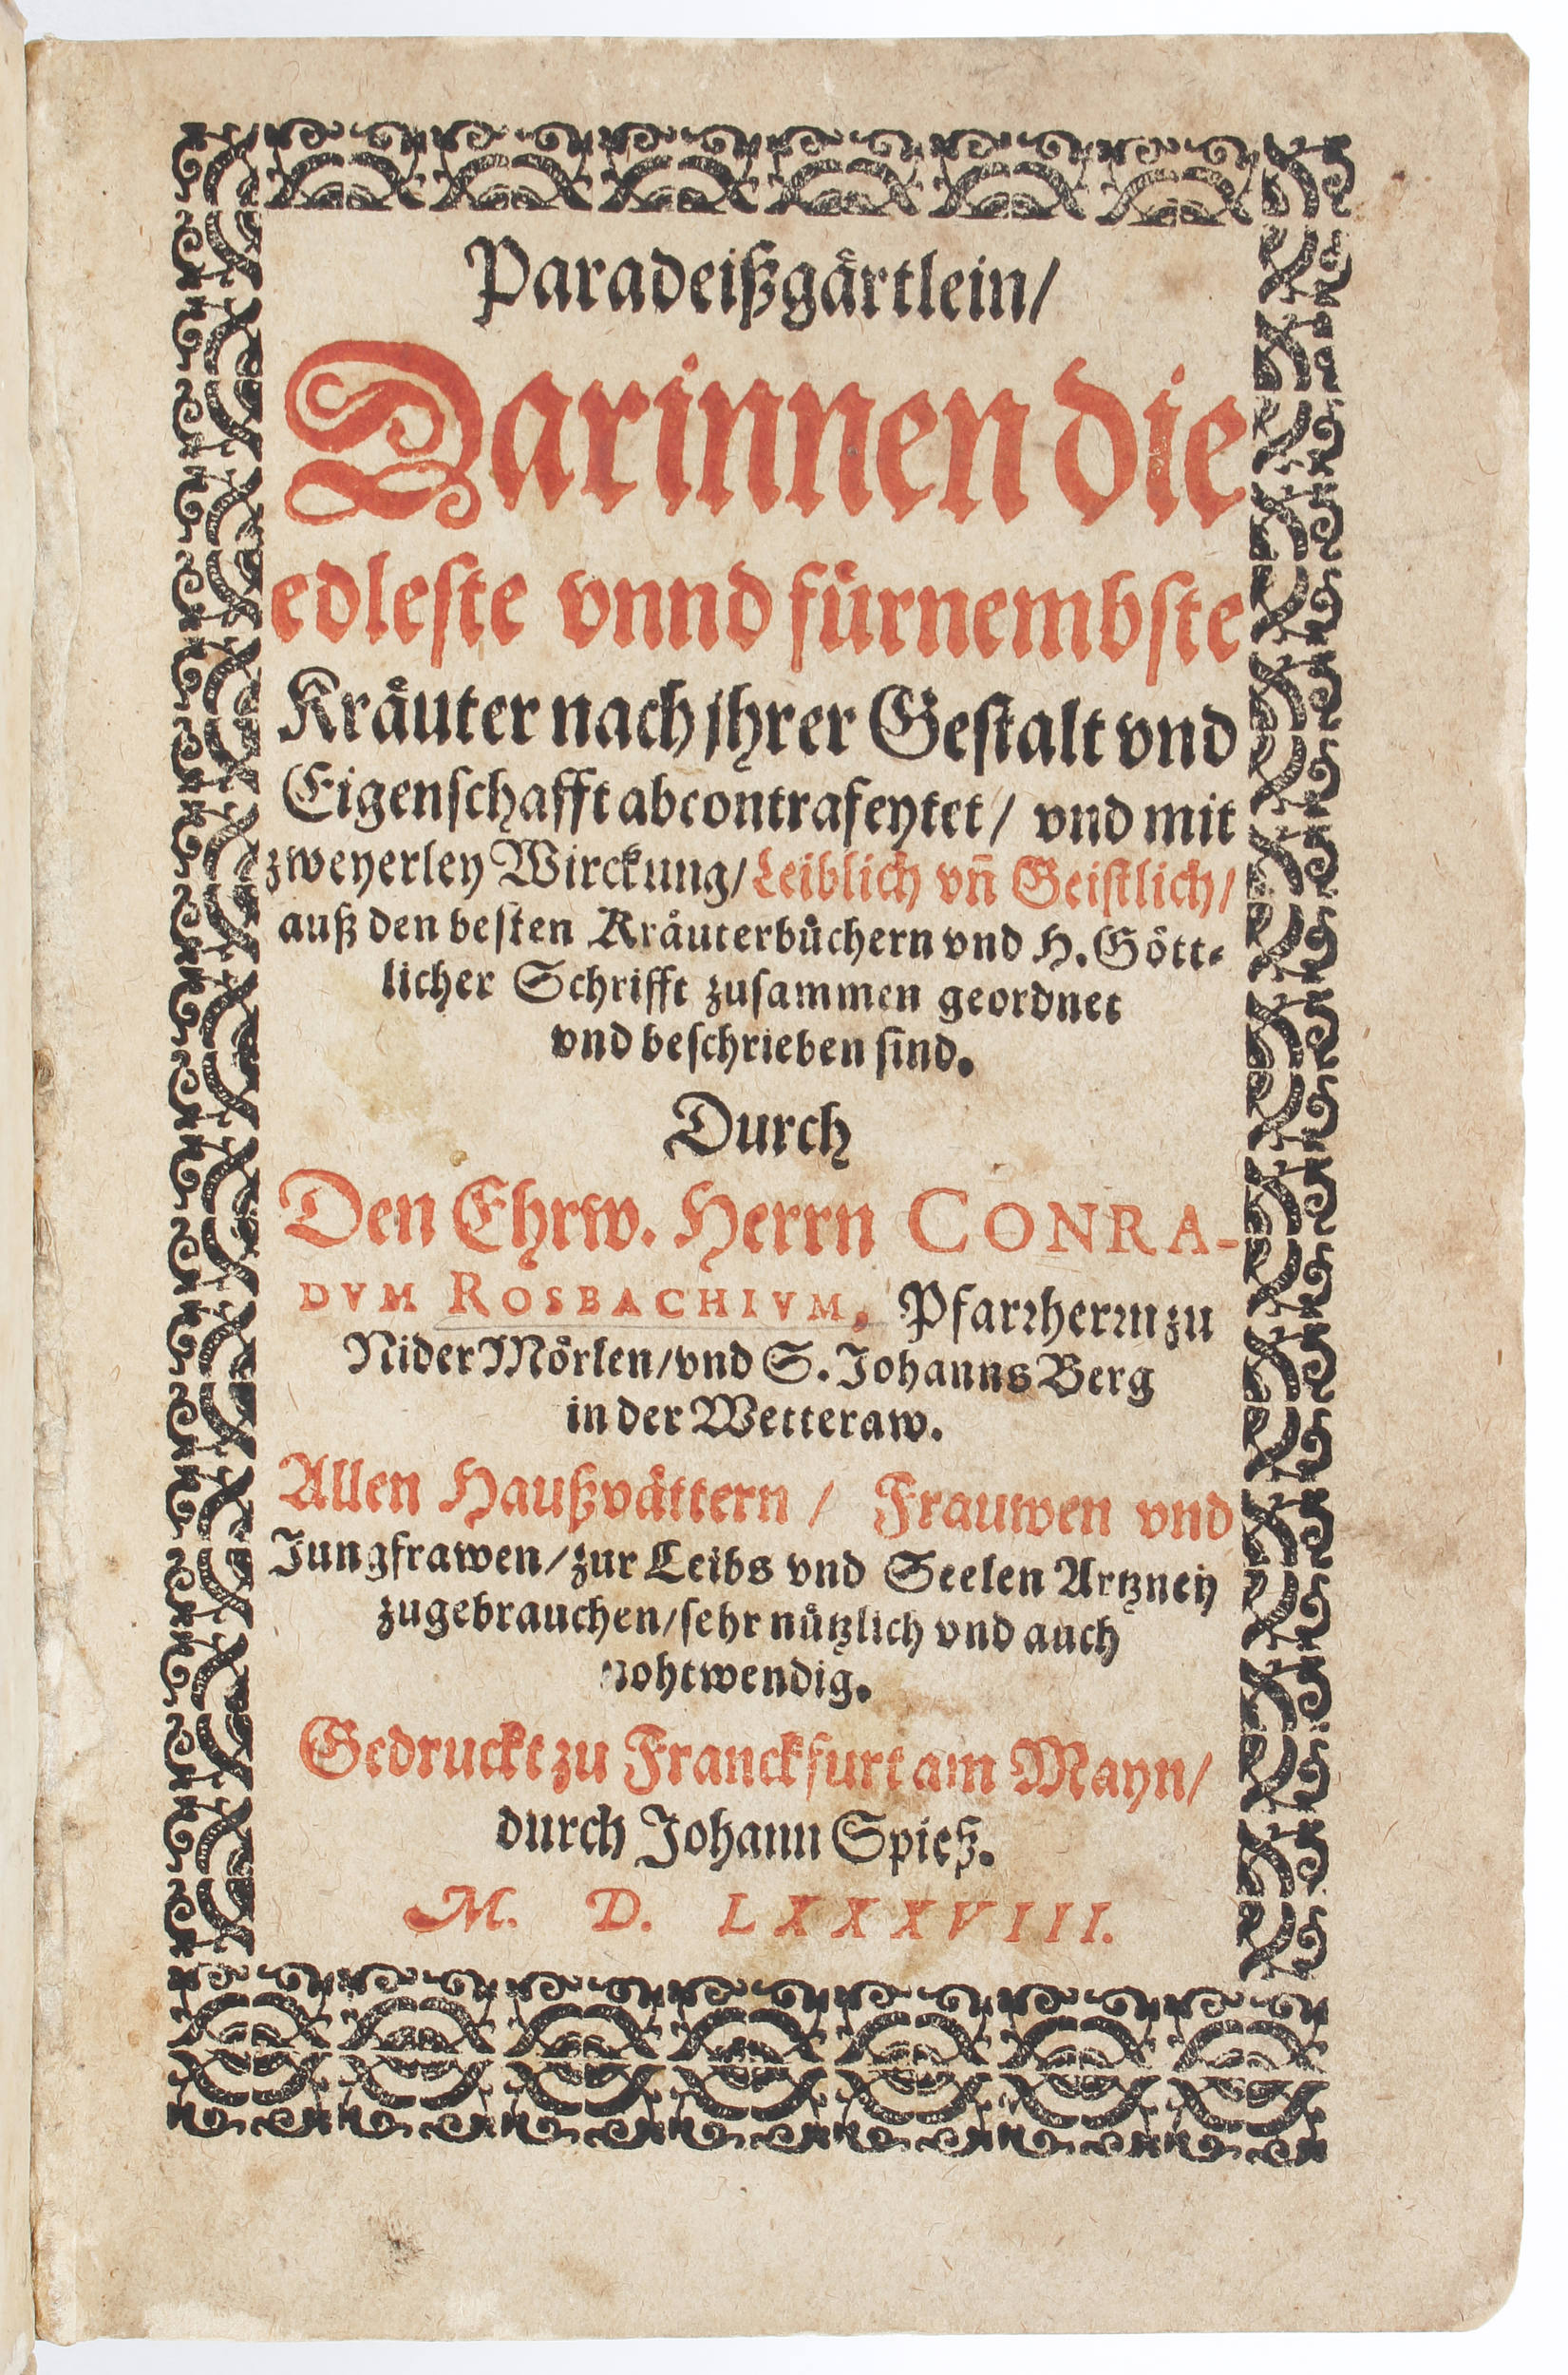 Paradeißgaͤrtlein/
Darinnen die
edleste vnnd fuͤrnembste
Kraͤuter nach jhrer Gestalt vnd
Eigenschafft abcontrafeytet/ vnd mit
zweyerley Wirckung/ Leiblich vn̄ Geistlich/
auß den besten Kraͤuterbuͤchern vnd H. Goͤtt-
licher Schrifft zusammen geordnet
vnd beschrieben sind.
Durch
Den Ehrw. Herrn CONRA-
DVM ROSBACHIVM, Pfarꝛherꝛn zu
Nider Moͤrlen/ vnd S. Johanns Berg
in der Wetteraw.
Allen Haußvaͤttern / Frauwen vnd
Jungfrawen/ zur Leibs vnd Seelen Artzney
zugebrauchen/ sehr nuͤtzlich vnd auch
nohtwendig.
Gedruckt zu Franckfurt am Mayn/
durch Johann Spieß.
M. D. LXXXVIII.